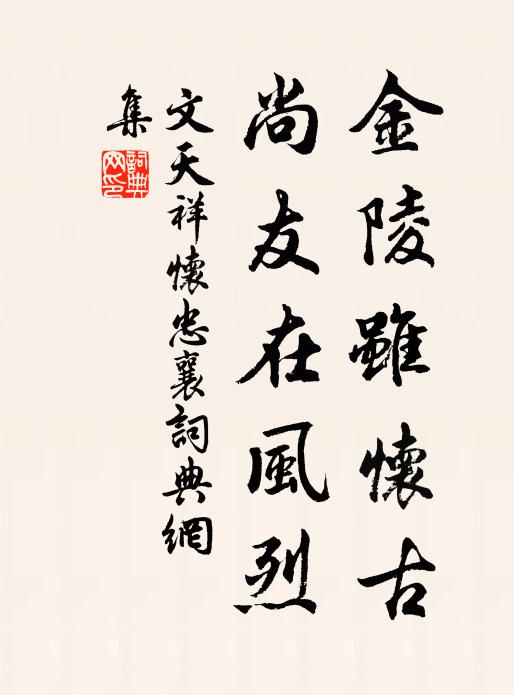 金陵雖懷古
尚友在風烈
文天祥懷忠襄詞典網
集
詞典网印